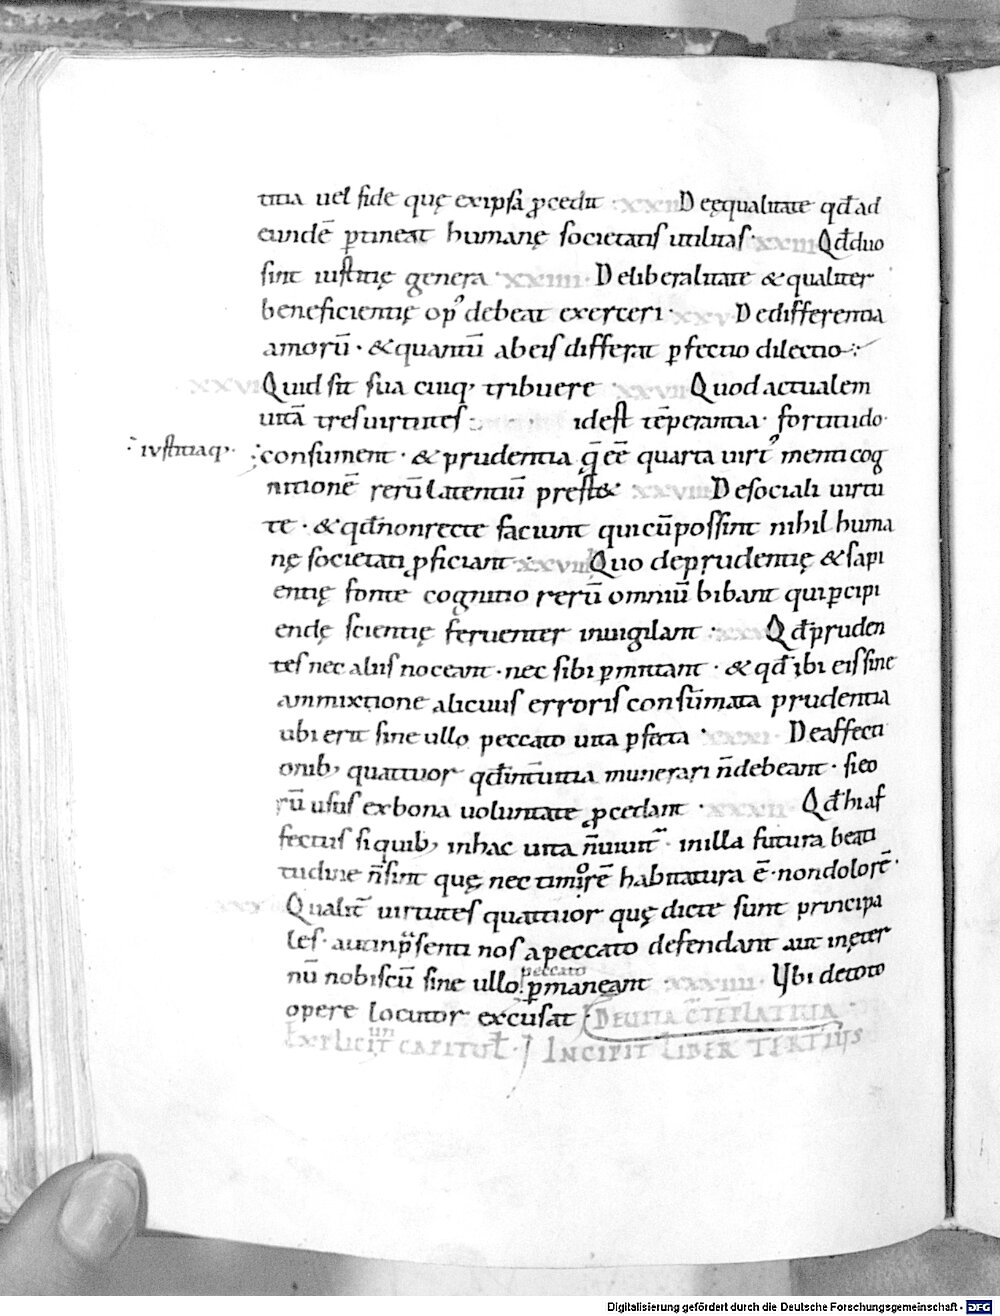 titia uel fide quę ex ipsa ꝓcedit · XXII De ęqualitate qđ ad
eundē ꝑtineat humanę societatis utilitas · XXIII Qđ duo
sint iustitię genera · XXIIII · De liberalitate & qualiter
beneficientię op᾽ debeat exerceri · XXV De differentia
amorū · & quantū ab eis differat ꝑfectio dilectio
XXVI Quid sit sua cuiq; tribuere XXVII Quod actualem
uitā tres uirtutes idest tēperantia · fortitudo ·
iustitiaq; · consument · & prudentia q̄ eē quarta uirt᾽ menti cog
nitionē rerū latentiū prest& XXVIII De sociali uirtu
te · & qđ non recte faciunt qui cū possint nihil huma
nę societati ꝓficiant · XXVIIII Quo de prudentię & sapi
entię fonte cognitio rerū omniū bibant qui ꝑcipi
endę scientię feruenter inuigilant · XXX Qđ pruden
tes nec aliis noceant · nec sibi ꝑmittant · & qđ ibi eis sine
ammixtione alicuius erroris consūmata prudentia
ubi erit sine ullo peccato uita ꝑfecta · XXXI · De affecti
onib; quattuor qđ int̄ uitia munerari n̄ debeant · si eo
rū usus ex bona uoluntate ꝓcedant · XXXII · Qđ hi af
fectus si quib; in hac uita n̄ uiuit᷑ · in illa futura beati
tudine n̄ sint quę nec timorē habitatura ē · non dolorē ·
Qualit̄ uirtutes quattuor quę dicte sunt principa
les · aut in p̄senti nos a peccato defendant aut in ęter
nū nobiscū sine ullo peccato ꝑmaneant XXXIIII · Ubi de toto
opere locutor excusat DE UITA CŌTEPLATIUA
EXPLICIUNT CAPITUL · INCIPIT LIBER TERTIUS
Digitalisierung gefördert durch die Deutsche Forschungsgemeinschaft - DFG